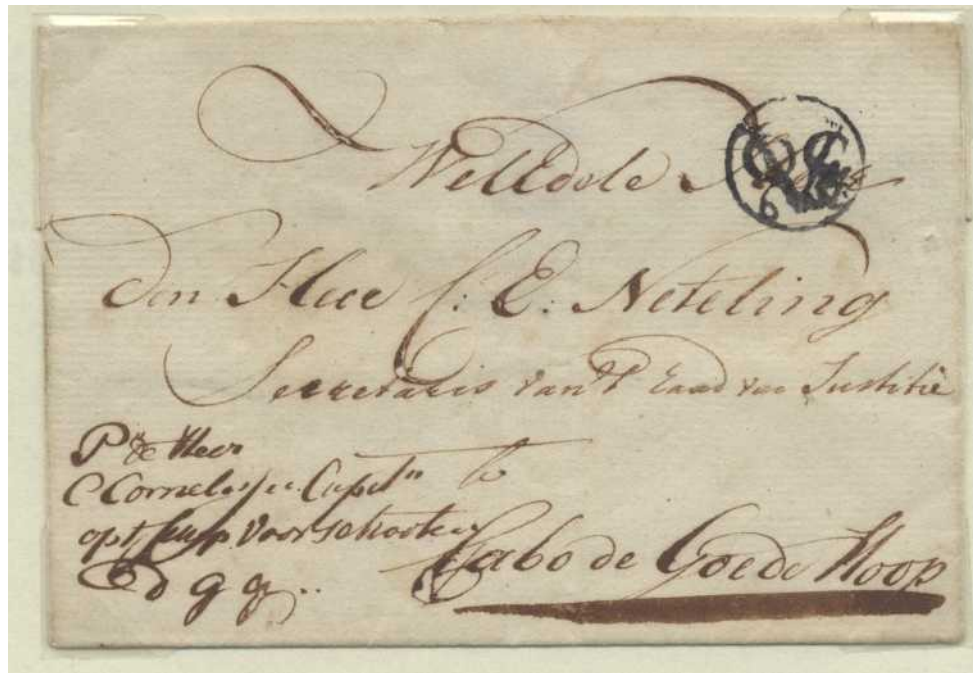 WelEdele Heer
den Heer C: E: Neteling
Secretaris van't Raad van Justitie
Pr de Heer
C Cornelisse Captn to
opt schip Voorschooten
D g g..
Cabo de Goede Hoop